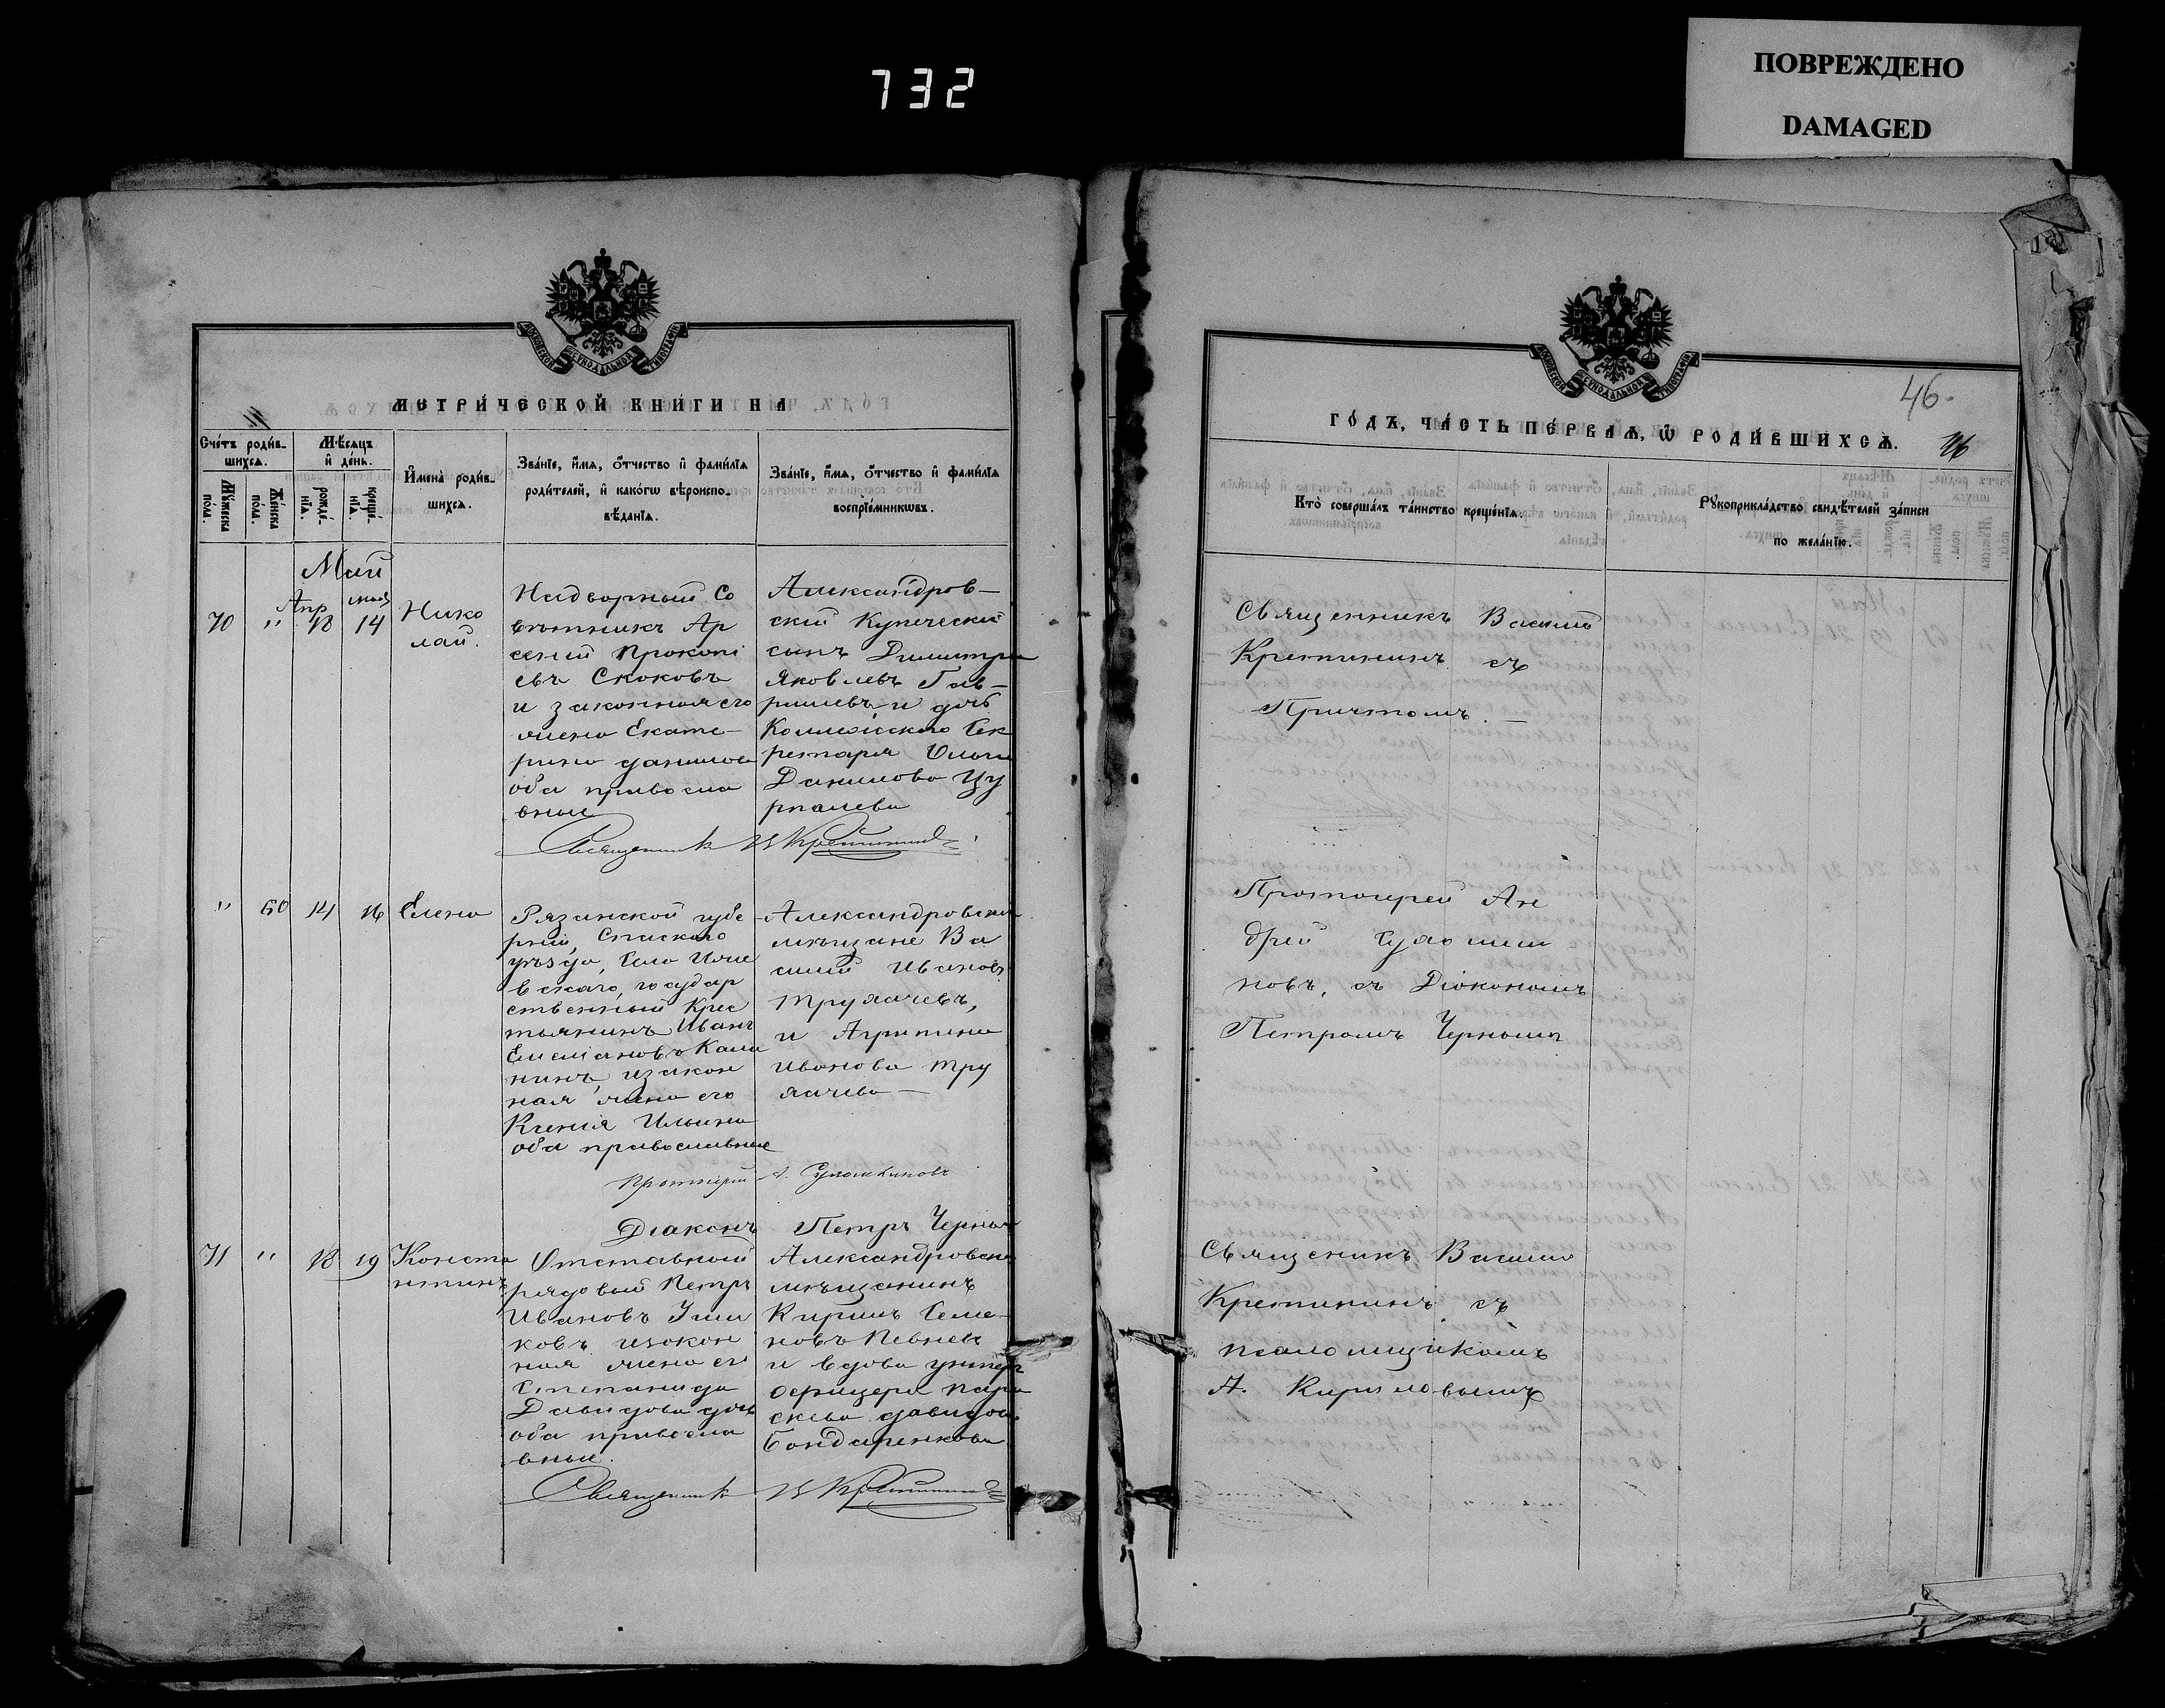 732
ПОВРЕЖДЕНО
DAMAGED
МОСКОВСКОЙ СѴНОДАЛЬНОЙ ТИПОГРАФІИ
МЕТРИ́ЧЕСКОЙ КНИ́ГИ НА
Сче́тъ роди́в-
шихсѧ.
Мꙋ́жеска
по́ла.
Же́нска
по́ла.
Мѣ́сѧцъ
и҆ де́нь.
рожде́-
нїѧ.
креще́-
нїѧ.
И҆мена̀ роди́в-
шихсѧ.
Зва́нїе, и҆́мѧ, ѻ҆́тчество и҆ фами́лїѧ
роди́телей, и҆ како́гѡ вѣроиспо-
вѣ́данїѧ.
Зва́нїе, и҆́мѧ, ѻ҆́тчество и҆ фами́лїѧ
воспрїе́мникѡвъ.
Май
70 " Апр 18 мая 14
Нико
лай.
Надворный Со
вѣтникъ Ар
сеній Прокопі
евъ Скоковъ
и законная его
жена Екате-
рина Данилова
оба правосла
вные
Александров-
скій Купеческій
сынъ Димитрій
Яковлевъ Гав-
риловъ и дочь
Коллежскаго Сек
ретаря Ольга
Данилова
Священникъ В Кретининъ
" 60 14 16 Елена
Рязанской губе
рніи, Спаскаго
уѣзда, Села
государ
ственный Крес
тьянинъ Иванъ
Емеліановъ Кали
нинъ, и закон
ная жена его
Ксенія Ильина
оба православные
Александровскіе
мѣщане Ва
силій Ивановъ
и Агрипина
Иванова
Протоіерей А. Сукачиновъ
Діаконъ Петръ Черный
71 " 18 19 Конста
нтинъ
Отставный
рядовый Петръ
Ивановъ
и закон
ная жена его
Степанида
Давидова дочь
оба правосла
вные.
Александровскій
мѣщанинъ
Кирилъ Семе-
новъ
и вдова унтеръ
офицера Пара
скева Давидова
Бондаренкова
Священникъ В Кретининъ
МОСКОВСКОЙ СѴНОДАЛЬНОЙ ТИПОГРАФІИ
46.
ГО́ДЪ, ЧА́СТЬ ПЕ́РВАѦ, Ѡ҆ РОДИ́ВШИХСѦ.
Кто̀ соверша́лъ та́инство креще́нїѧ.
Рꙋкоприкла́дство свидѣ́телей за́писи
по жела́нїю.
Священникъ Василій
Кретининъ съ
Причтомъ.
Протоіерей Ан
дрей
новъ, съ Діакономъ
Петромъ Чернымъ
Священикъ Василій
Кретининъ съ
псаломщикомъ
А. Кириловымъ